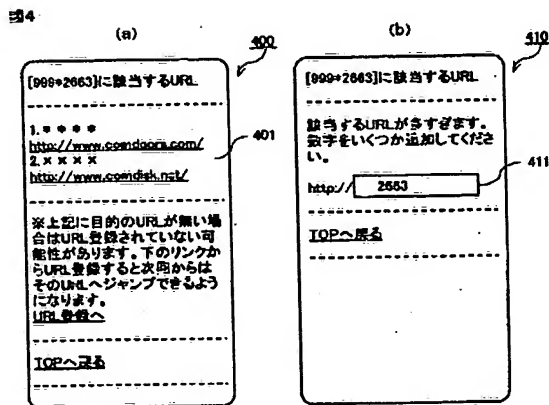 図4
(a)
400
[999*2663]に該当するURL
1.＊＊＊＊
http://www.comdoors.com/
2.××××
http://www.comdisk.net/
401
※上記に目的のURLが無い場
合はURL登録されていない可
能性があります。下のリンクか
らURL登録すると次回からは
そのURLへジャンプできるよう
になります。
URL登録へ
TOPへ戻る
(b)
410
[999*2663]に該当するURL
該当するURLが多すぎます。
数字をいくつか追加してくださ
い。
http:// 2663
411
TOPへ戻る